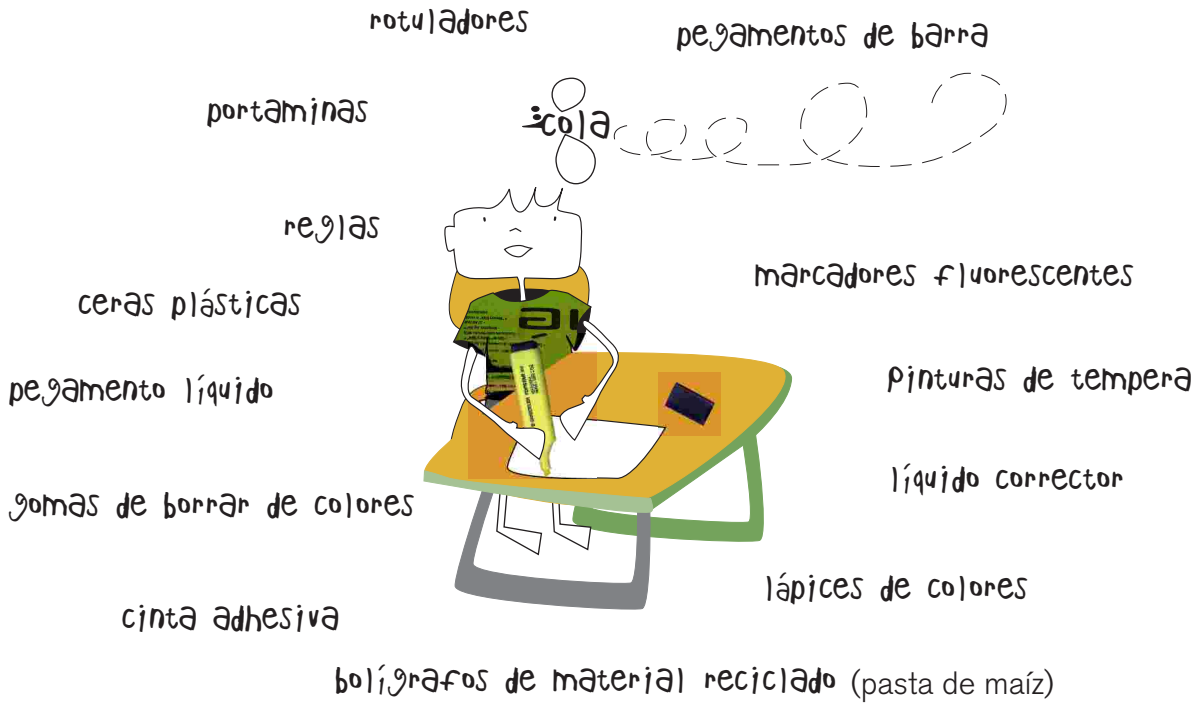 rotuladores
pegamentos de barra
portaminas
cola
reglas
marcadores fluorescentes
ceras plásticas
pegamento líquido
pinturas de tempera
líquido corrector
gomas de borrar de colores
lápices de colores
cinta adhesiva
bolígrafos de material reciclado (pasta de maíz)